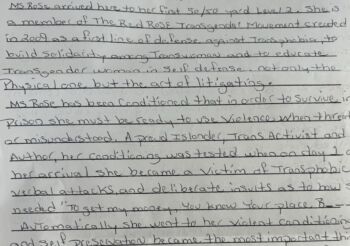 MS Rose arrived here to her first 50/50 yard Level 2. She is
a member of The Red Rose Transgender Movement created
in 2009 as a first line of defense against Transphobia, to
build solidarity among Transwoman and to educate
Transgender woman in self defense, not only the
Physical one, but the act of litigating.
MS Rose has been conditioned that in order to survive in
Prison she must be ready to use Violence when threat
or misunderstood. A proud Islander, Trans Activist and
Author, her conditioning was tested when on day 1 o
her arrival she became a victim of Transphobic
verbal attacks, and deliberate insults as to how s
needed "To get my money, You know Your place, B
Automatically she went to her violent conditioning
and self preservation became the most important thi